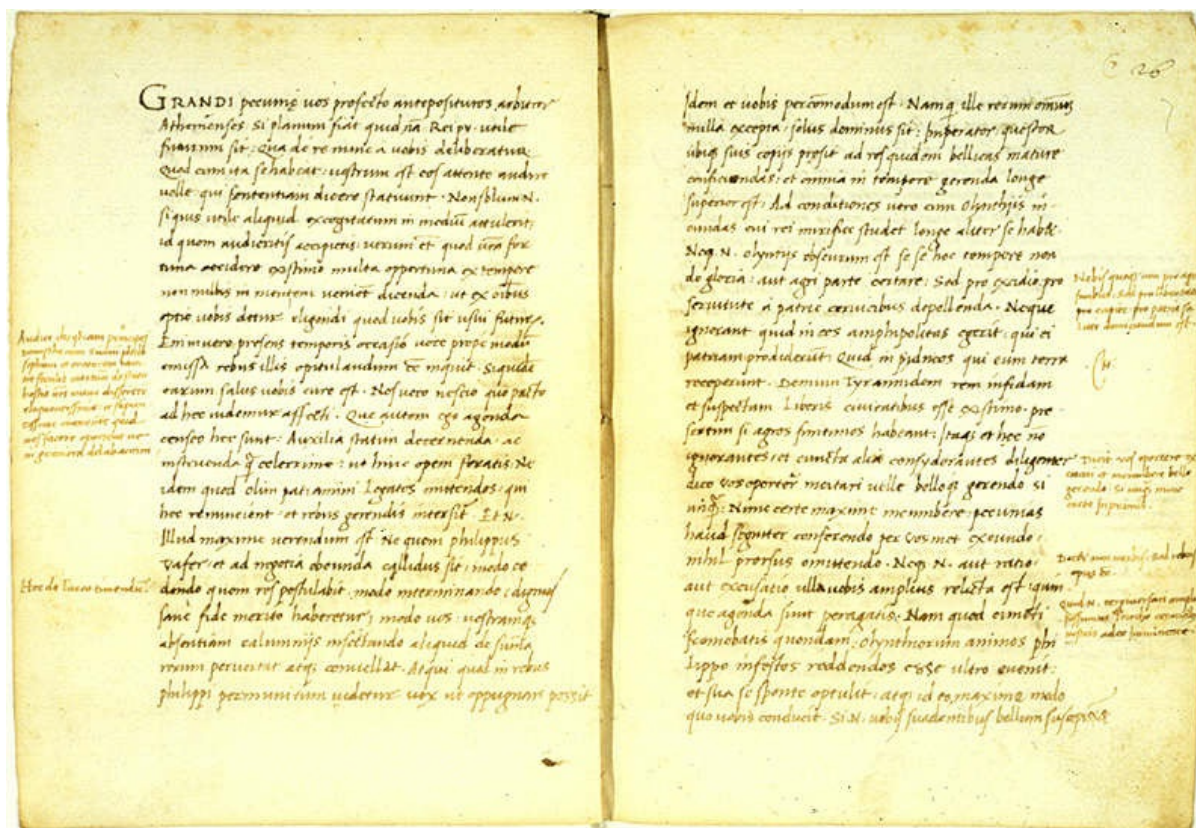 GRANDI pecunię uos profecto anteposituros arbitror
Athenienses si planum fiat quid nā Rei pu. utile
futurum sit: Qua de re nunc a uobis deliberatur
Quod cum ita se habeat: uestrum est eos attente audire
uelle qui sententiam dicere statuunt. Non solum N.
si quis utile aliquid excogitatum in mediū attulerit,
id quom audieritis accipietis: uerum et quod ura for
tuna accidere existimo multa opportuna ex tempere
non nullis in mentem ueniet dicenda: ut ex oibus
optio uobis detur eligendi quod uobis sit usui
Enim uero presens temporis occasio uoce prope modū
emissa rebus illis opitulandum ee inquit. Siquidē
earum salus uobis cure est. Nos uero nescio quo pacto
ad hec uidemur affecti. Que autem ego agenda
censeo hec sunt: Auxilia statim decernenda. ac
instruenda q̄ celerrime: ut hinc opem feratis. Ne
idem quod olim patiamini Legatos mittendos: qui
hec renuncient et rebus gerendis intersit. Et N.
Illud maxime uerendum est. Ne quom philippus
uafer: et ad negotia obeunda callidus sit: modo ce
dendo quom res postulabit. modo interminando: dignus
sane fide merito haberetur, modo uos: uestramq;
absentiam calumnijs insectando aliquid de sūma
rerum peruertat atq; conuellat. Atqui quod in rebus
philippi permunitum uidetur uix ut oppugnari possit
Hoc de Turco timendū.
26
Idem et uobis percōmodum est. Namq; ille rerum omniū
nulla excepta: solus dominus sit: Imperator: questor
ubiq; suis copijs presit ad res quidem bellicas mature
conficiendas: et omnia in tempere gerenda longe
superior est: Ad conditiones uero cum Olynthijs in
eundas cui rei mirifice studet longe aliter se habēt.
Neq. N. olyntijs obscurum est se se hoc tempere non
de gloria: aut agri parte certare: Sed pro excidio: pro
seruitute a patrie ceruicibus depellenda. Neque
ignorant quid in eos amphipolitas egerit: qui ei
patriam prodiderūt: Quid in pydneos qui eum terra
receperunt. Demum Tyrannidem rem infidam
et suspectam Liberis ciuitatibus esse existimo. pre
sertim si agros finitimos habeant: Itaq; et hec nō
ignorantes: et cuncta alia consyderantes diligenter
dico uos oportere incitari utille belloq; gerendo si
unq̄: Nunc certe maxime incumbere: pecunias
haud segniter conferendo per uosmet exeundo:
nihil prorsus omittendo. Neq. N. aut ratio:
aut excusatio ulla uobis amplius relicta est: quin
que agenda sunt peragatis. Nam quod cuncti
fremebatis quondam: olynthiorum animos phi
lippo infestos reddendos esse ultro euenit:
et sua se sponte optulit: atq; id eo maxime modo
quo uobis conducit. Si N. uobis suadentibus bellum